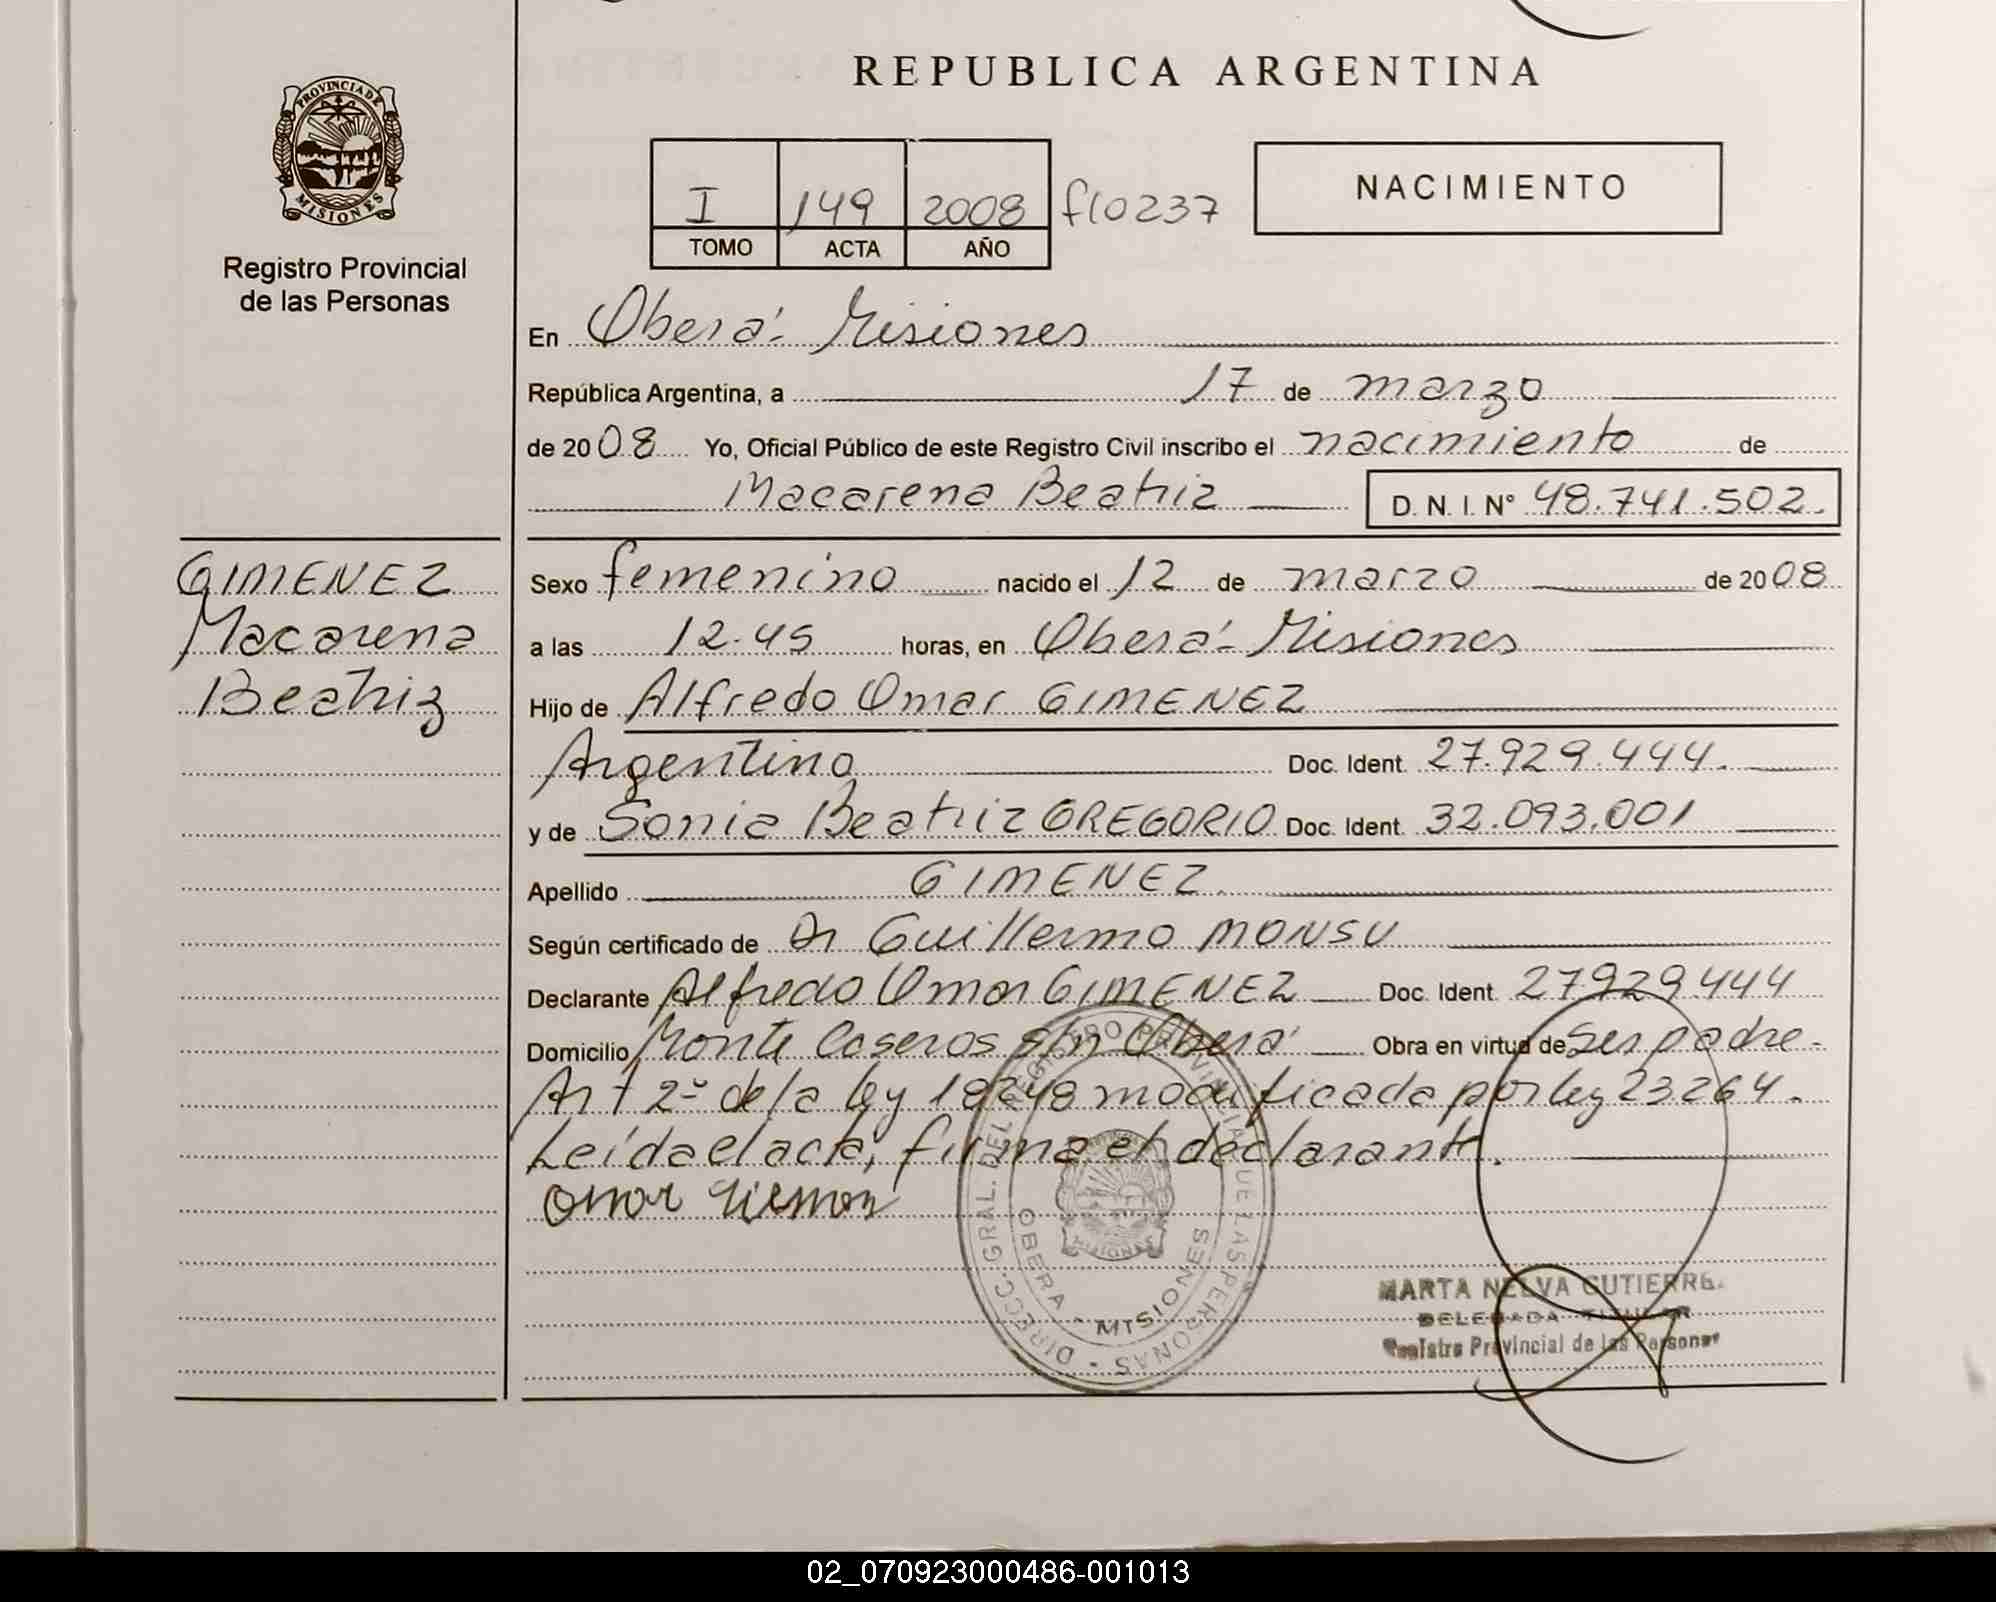 REPUBLICA ARGENTINA
PROVINCIA DE
MISIONES
Registro Provincial
de las Personas
I 149 2008 flo 237
TOMO ACTA AÑO
NACIMIENTO
En Oberá - Misiones
República Argentina, a 17 de marzo
de 2008 Yo, Oficial Público de este Registro Civil inscribo el nacimiento de
Macarena Beatriz D. N. I. Nº 48.741.502.
GIMENEZ
Macarena
Beatriz
Sexo femenino nacido el 12 de marzo de 2008
a las 12.45 horas, en Oberá - Misiones
Hijo de Alfredo Omar GIMENEZ
Argentino Doc. Ident. 27.929.444.
y de Sonia Beatriz GREGORIO Doc. Ident. 32.093.001
Apellido GIMENEZ.
Según certificado de Dr Guillermo MONSU
Declarante Alfredo Omar GIMENEZ Doc. Ident. 27929444
Domicilio Monte Caseros s/n Oberá Obra en virtud de ser padre -
Art 2º de la ley 18248 modificada por ley 23264.
Leída el acta, firma el declarante.
Omar
DIRECC. GRAL. DEL REGISTRO PROVINCIAL DE LAS PERSONAS -
OBERA - MISIONES
MISIONES
MARTA NELVA GUTIERRE
DELEGADA TITULAR
Registro Provincial de las Personas
02_070923000486-001013